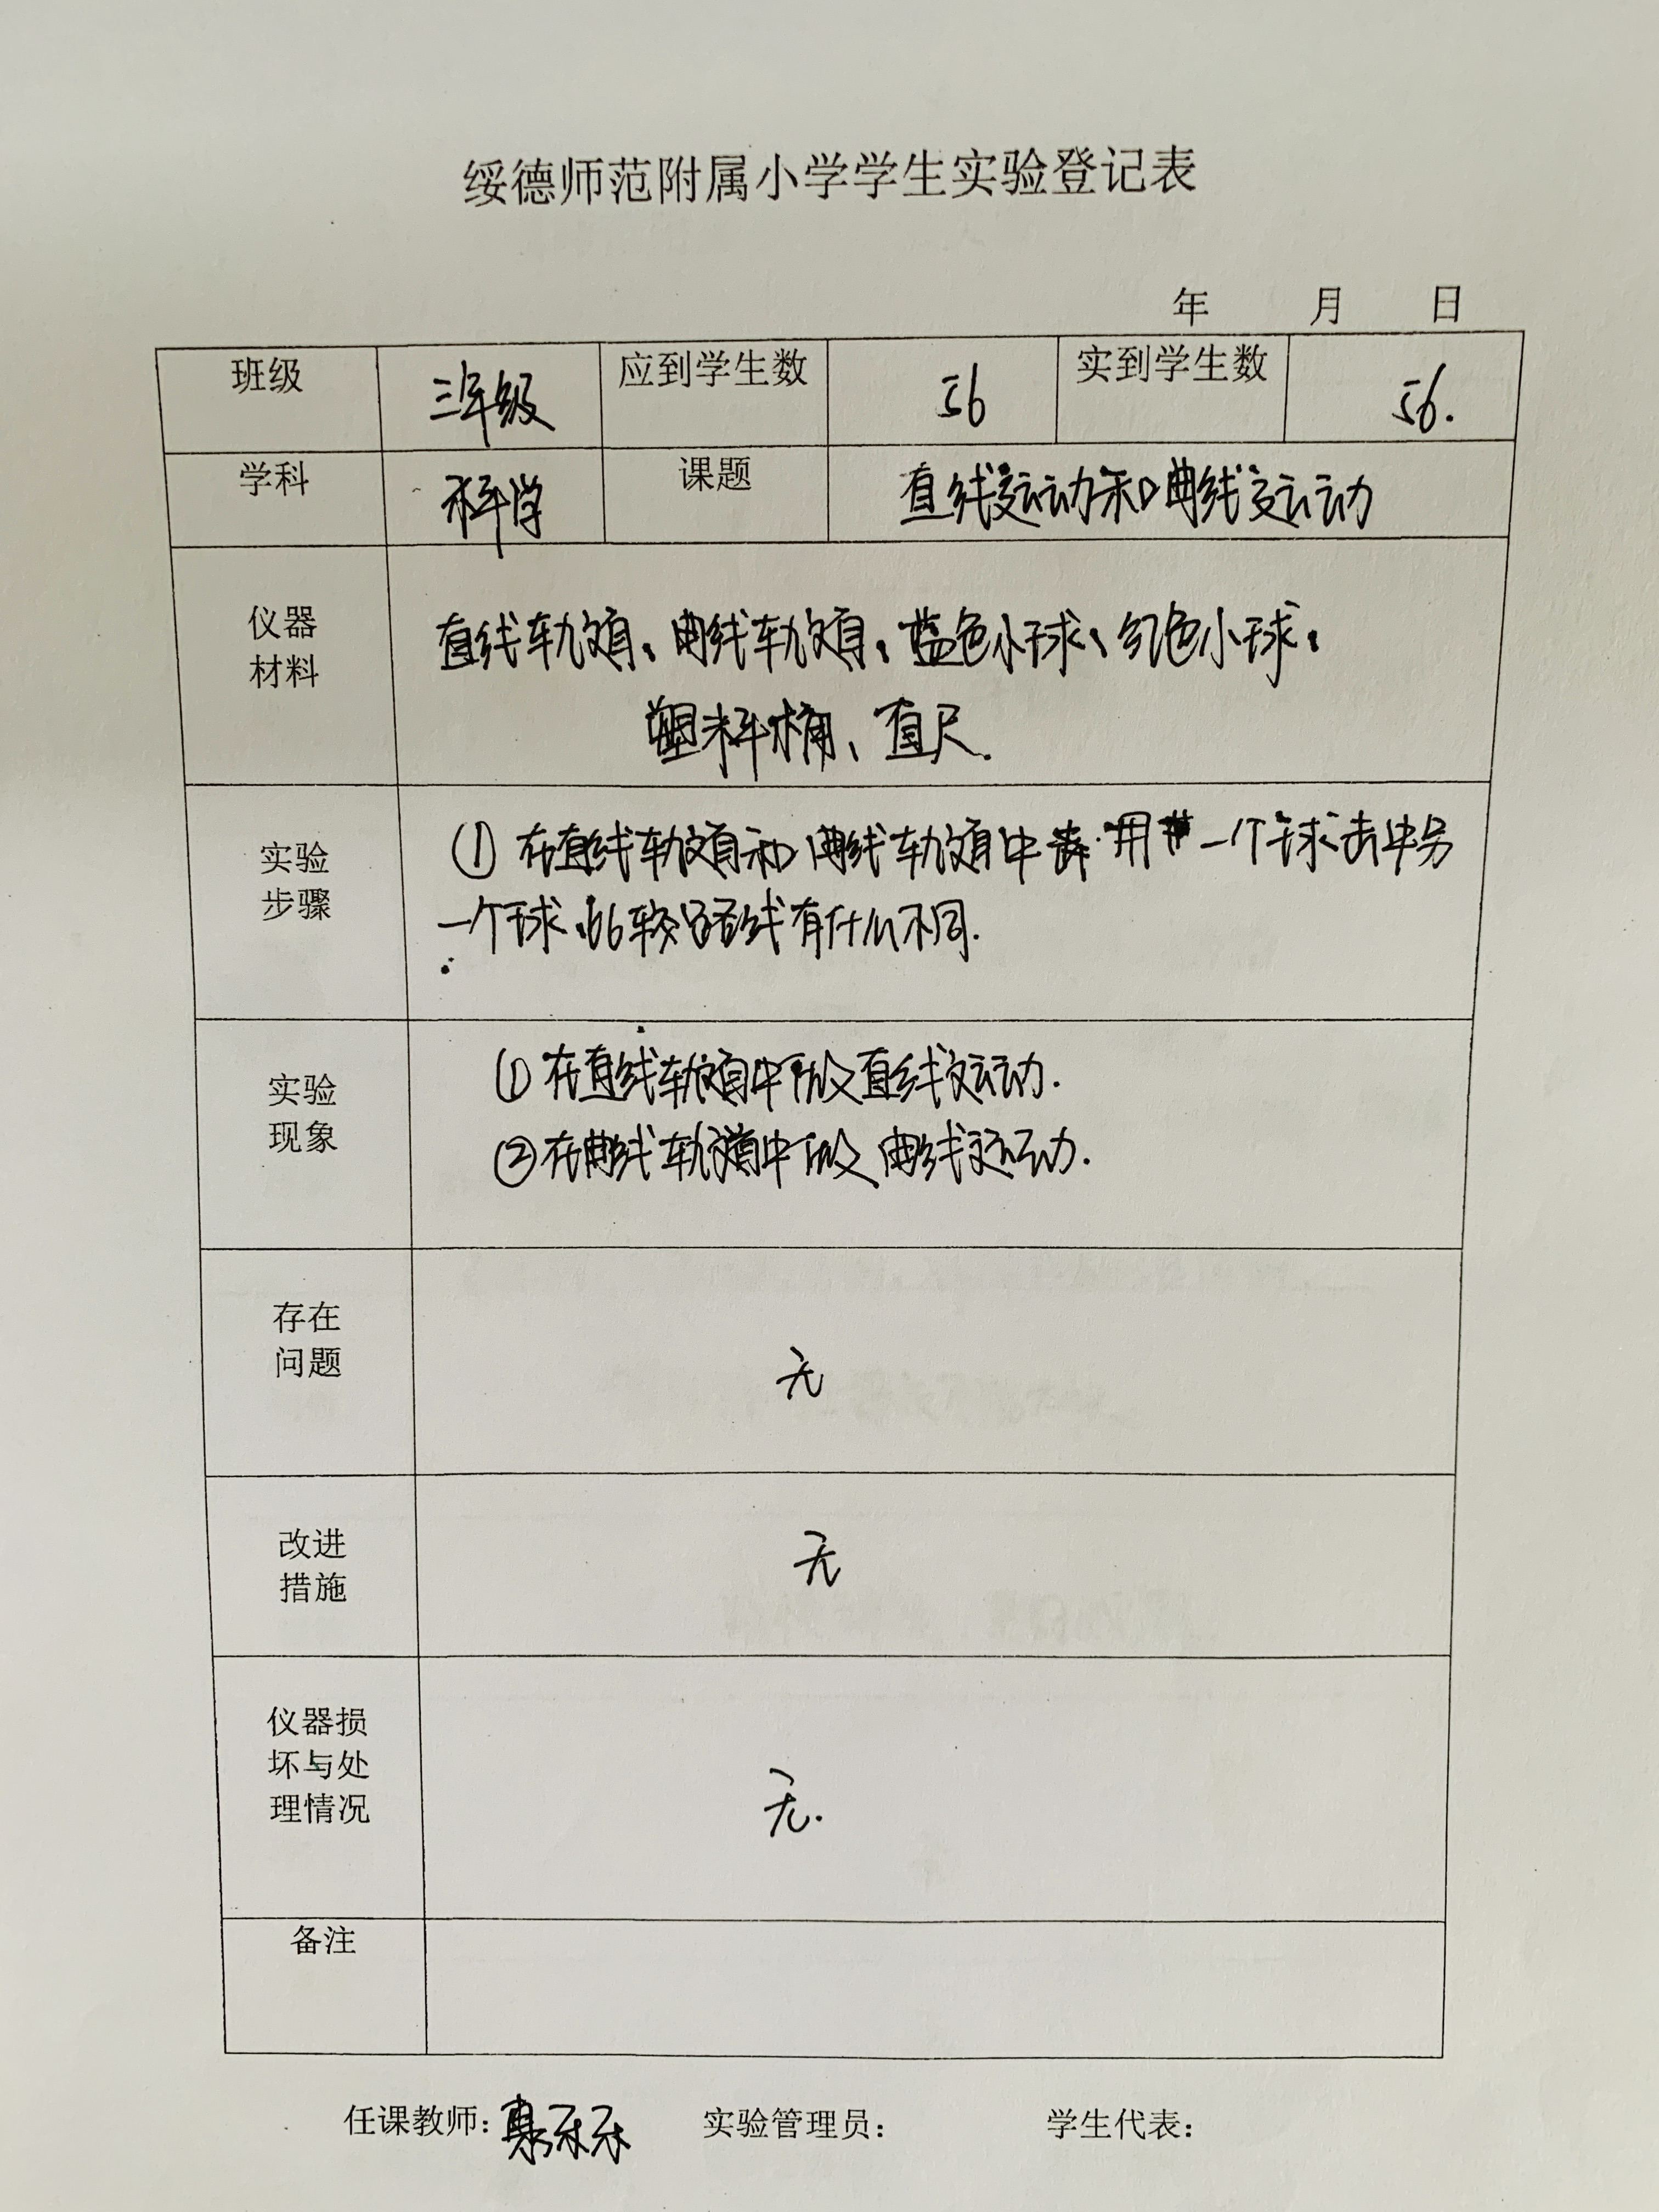 绥德师范附属小学学生实验登记表
年 月 日
班级 三年级 应到学生数 56 实到学生数 56.
学科 科学 课题 直线运动和曲线运动
仪器
材料
直线轨道、曲线轨道、蓝色小球、红色小球、
塑料桶、直尺.
实验
步骤
① 在直线轨道和曲线轨道中 用 一个球击中另
一个球,比较路线有什么不同.
实验
现象
① 在直线轨道中做直线运动.
② 在曲线轨道中做曲线运动.
存在
问题
无
改进
措施
无
仪器损
坏与处
理情况
无.
备注
任课教师: 实验管理员: 学生代表: